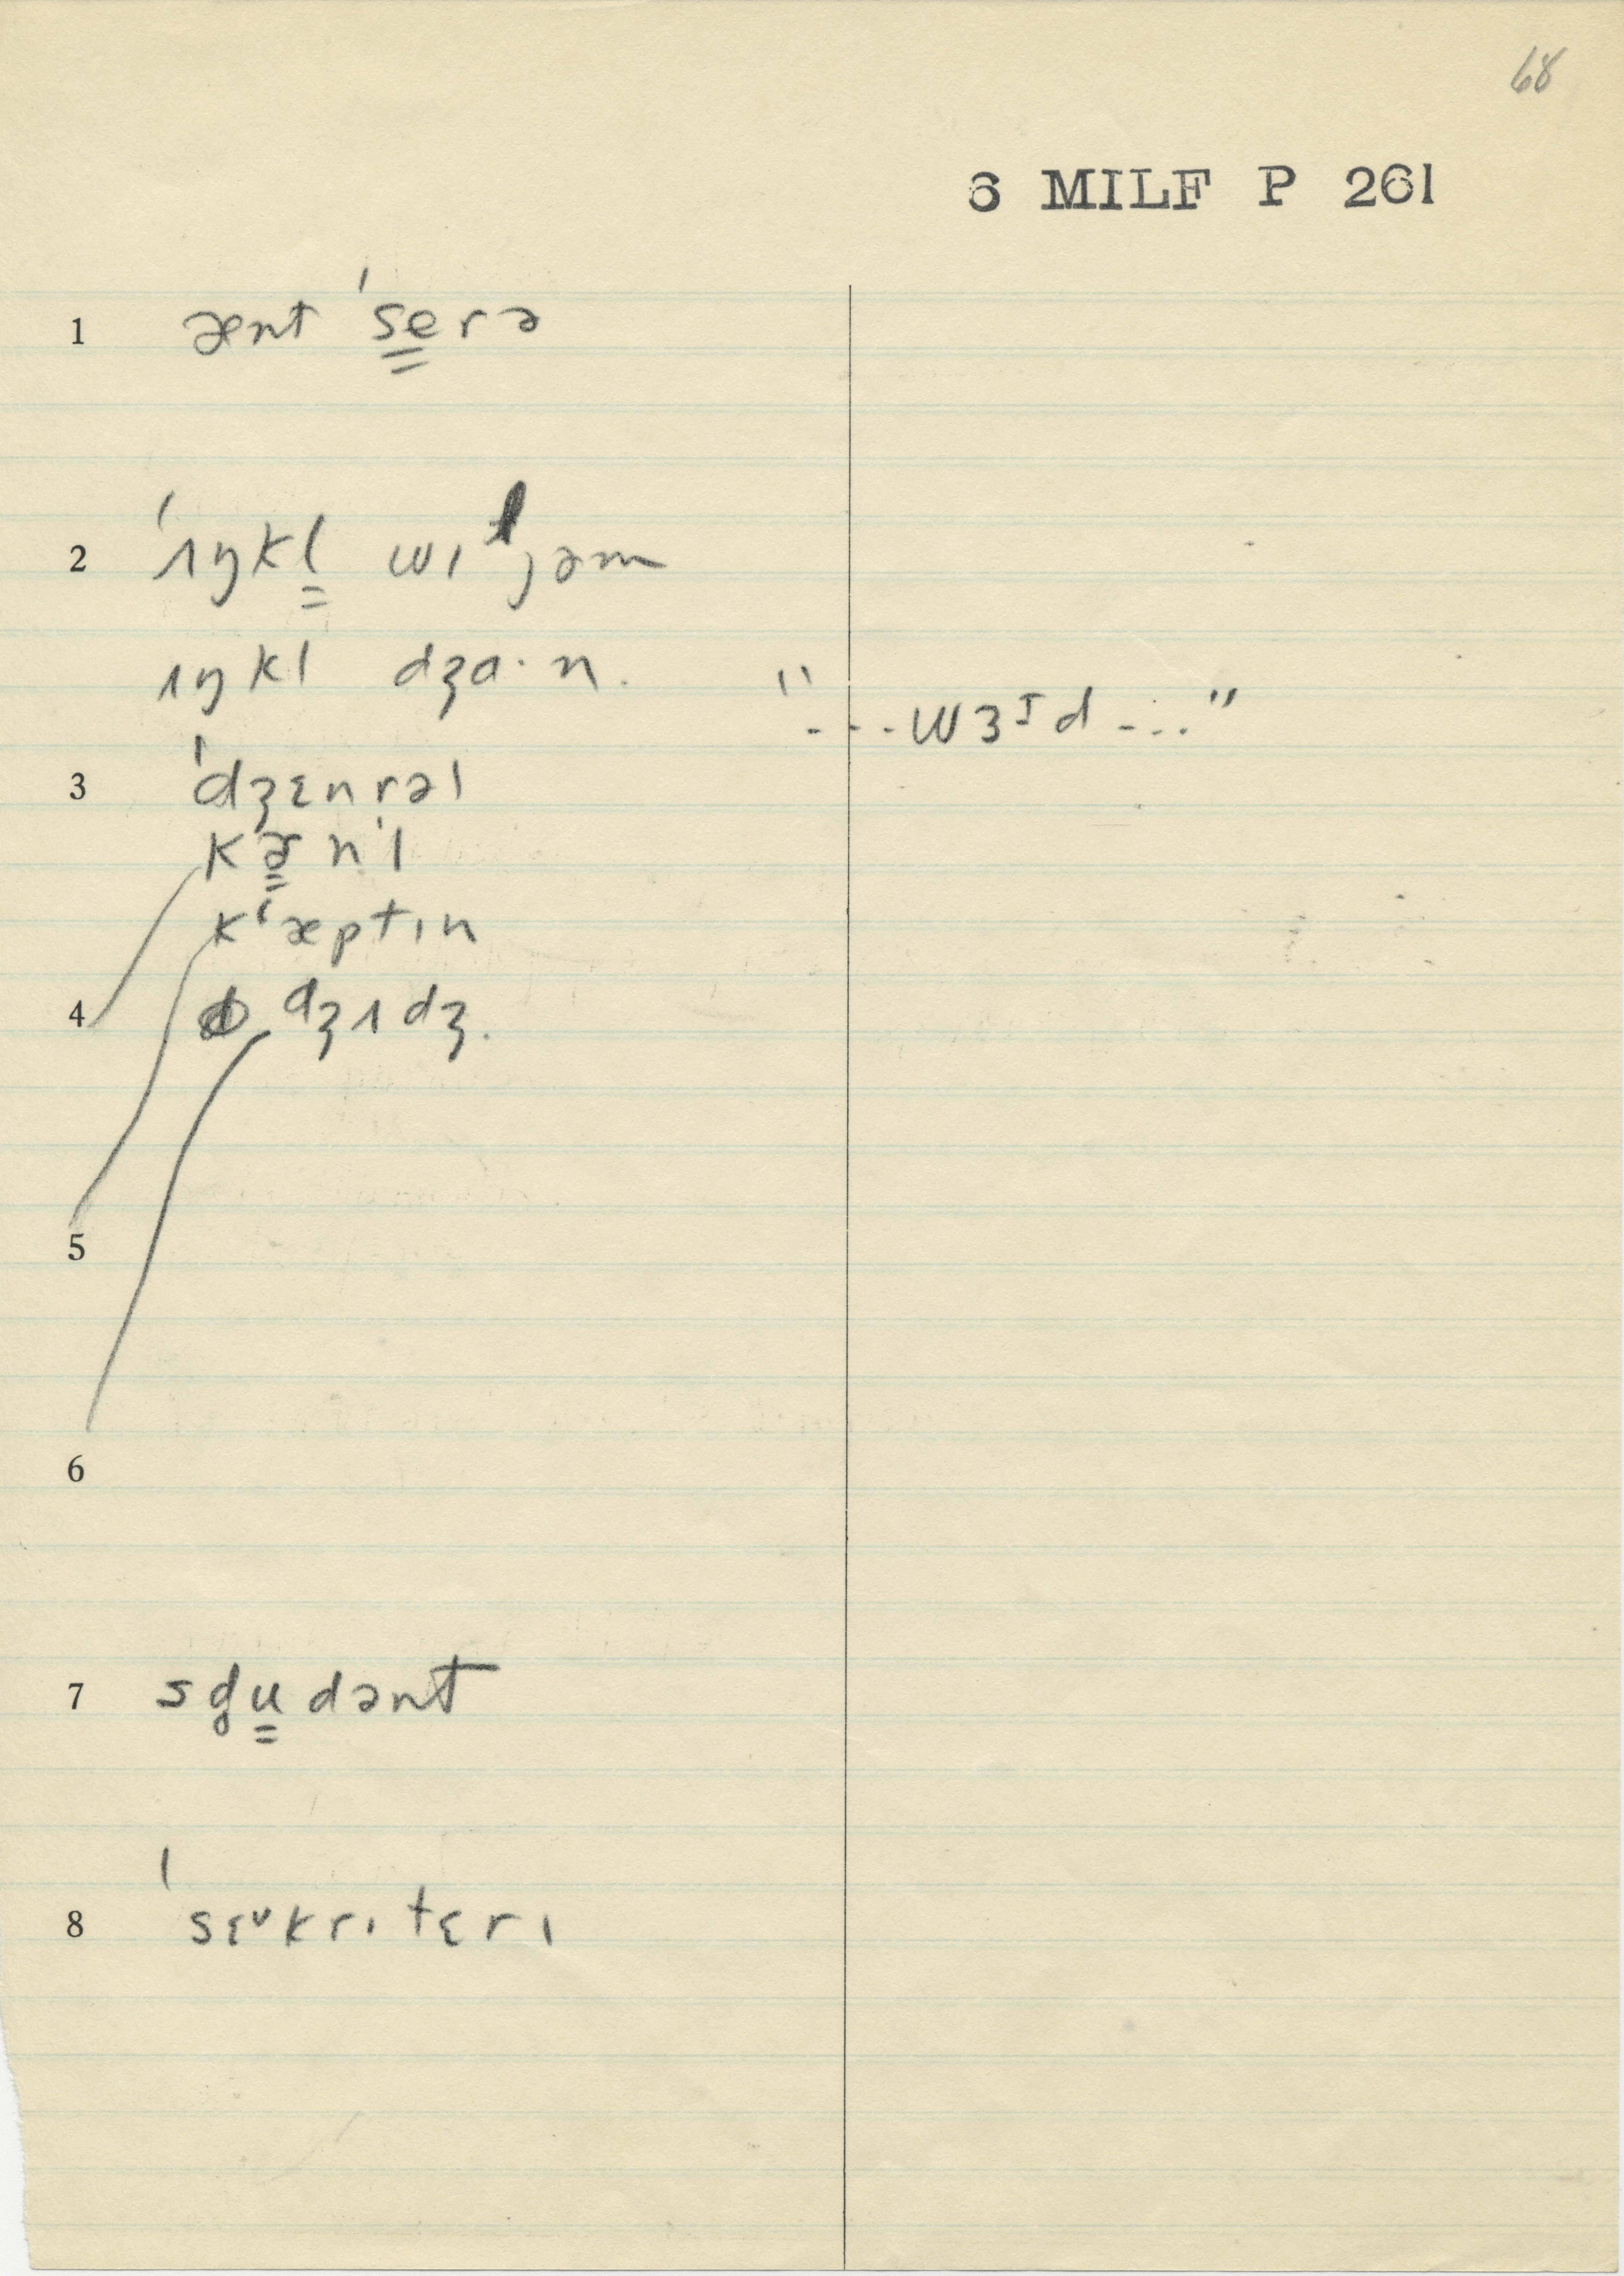 68
6 MILF P 261
1 ænt ˈse̳rə
2 ˈɿŋkl̳ wɪljəm
ɿŋkl dʒɑ·n.
"---wɜᶦd---"
3 ˈdʒɛnrəl
kɚ̳nˈl
kʻæptɪn
4 dʒɿdʒ.
5
6
7 sd̥u̳dənt
8 ˈsɛᵛkrɪtɛrɪ